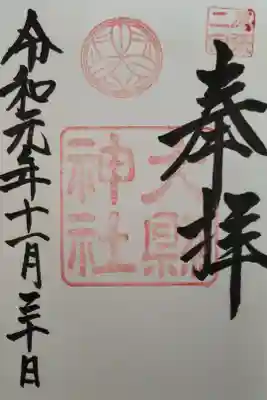 奉拝
大縣
神社
令和元年十一月三十日